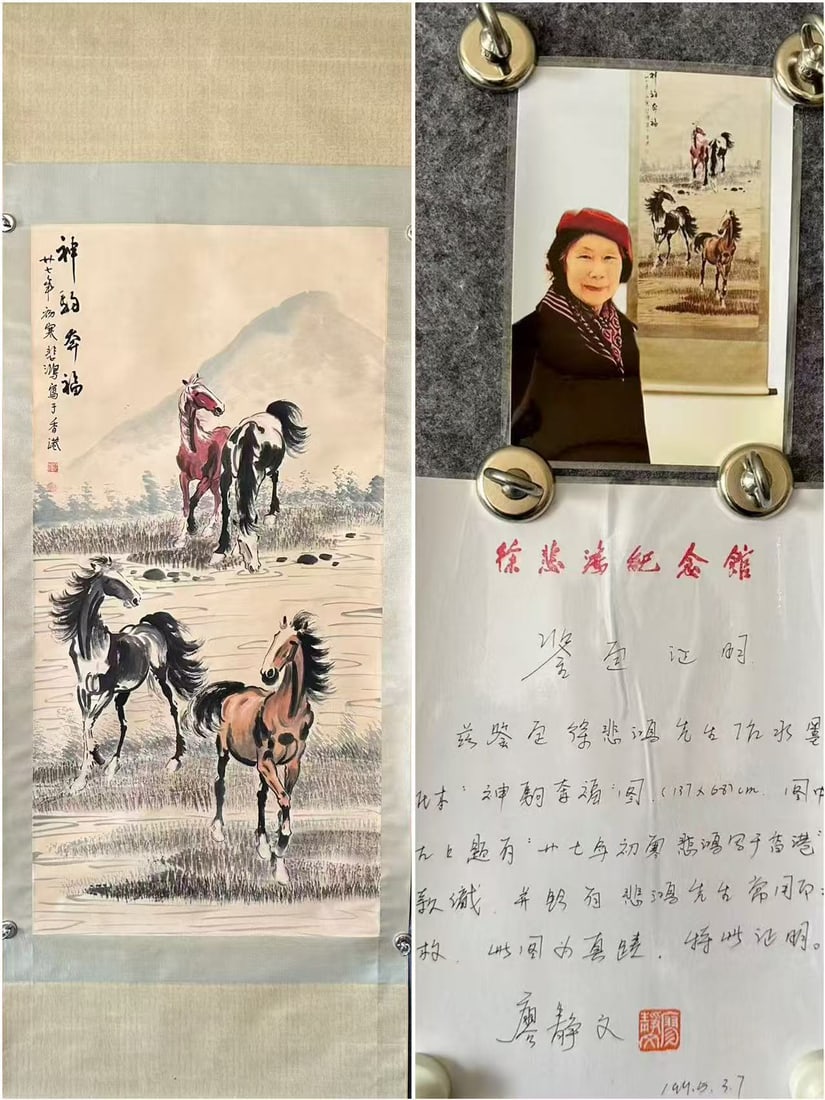 神駒奔福
廿七年初寒悲鴻寫于香港
神駒奔福
徐悲鴻紀念館
鉴定证明
兹鉴定徐悲鴻先生作水墨
"神駒奔福"图.(137×68)cm.图中
左上题有"廿七年初寒悲鸿写于香港"
款儀.并钤有悲鸿先生常用印
枚.此图为真蹟.特此证明。
廖静文
3.7